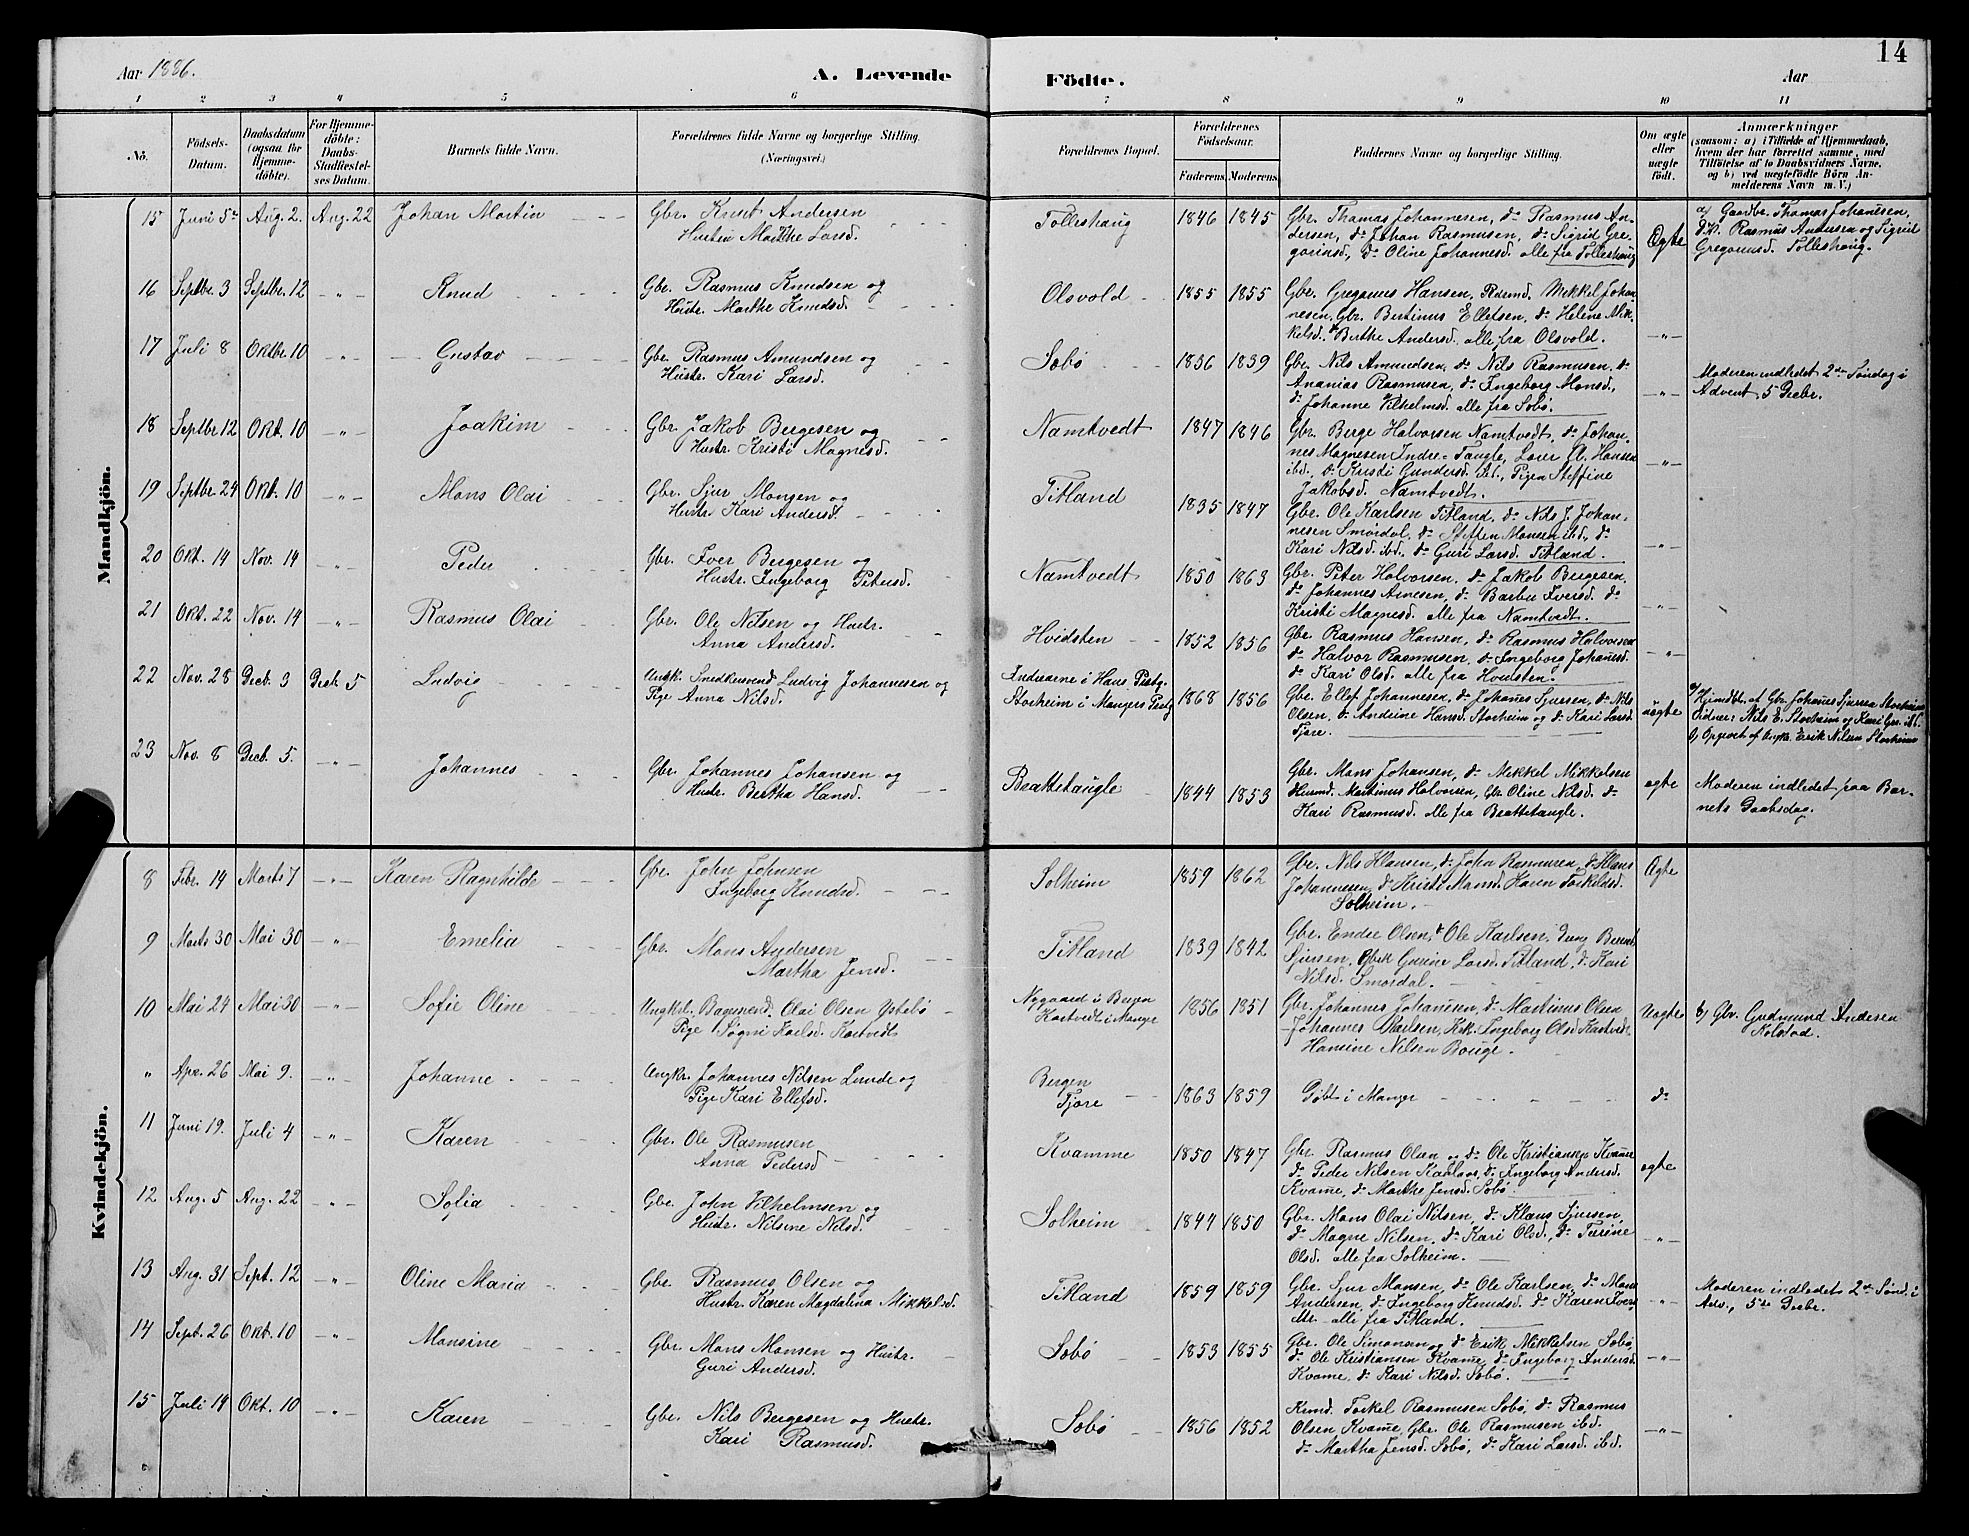 14
Aar 1886.
A. Levende Födte.
Aar
1 2 3 4 5 6 7 8 9 10 11
No.
Födsels-Datum.
Daabsdatum (ogsaa for Hjemme-döbte).
For Hjemme-döbte: Daabs-Stadfæstel-ses Datum.
Barnets fulde Navn.
Forældrenes fulde Navne og borgerlige Stilling. (Næringsvei.)
Forældrenes Bopæl.
Forældrenes Födselsaar.
Faderens. Moderens.
Faddernes Navne og borgerlige Stilling.
Om ægte eller uægte födt.
Anmærkninger
(saasom: a) i Tilfælde af Hjemmedaab,
hvem der har forrettet samme, med
Tilföielse af to Daabsvidners Navne,
og b) ved uægtefödte Börn An-
melderens Navn m. V.)
Mandkjön.
15 Juni 5te Aug. 2. Aug. 22 Johan Martin
Gbr. Knut Andersen
Hustru Marthe Larsd.
Tolleshaug 1846 1845
Gbr. Thomas Johannesen, do Rasmus An-
dersen, do Johan Rasmusen, do Sigrid Gre-
goriusd., do Oline Johannesd. alle fra Tolleshaug
Ægte
a) Gaardbr. Thomas Johannesen,
Rasmus Andersen og Sigrid
Gregoriusd. Tolleshaug.
16 Septbr. 3 Septbr. 12 -"- Knud
Gbr. Rasmus Knudsen og
Hustr. Marthe Knudsd.
Olsvold 1855 1855
Gbr. Gregorius Hansen, Mikkel Johan-
nesen, Gbr. Bertinus Ellefsen, do Helene Mik-
kelsd. do Berthe Andersd. alle fra Olsvold.
-"-
17 Juli 8 Oktbr. 10 -"- Gustav
Gbr. Rasmus Amundsen og
Hustr. Kari Larsd.
Sæbø 1836 1839
Gbr. Nils Amundsen, do Nils Rasmusen, do
Ananias Rasmusen, do Ingeborg Monsd.,
do Johanne Vilhelmsd. alle fra Sæbø.
-"-
Moderen indledet 2den Søndag i
Advent, 5 Decbr.
18 Septbr 12 Okt. 10 -"- Joakim
Gbr. Jakob Bergesen og
Hustr. Kristi Magnesd.
Namtvedt 1847 1846
Gbr. Berge Halvorsen Namtvedt, do Johan-
nes Magnesen Indre-Taugle, Hansen
ibd. do Kristi Gundersd. Pigen Steffine
Jakobsd. Namtvedt.
-"-
19 Septbr. 24 Okt. 10 -"- Mons Olai
Gbr. Sjur Monsen og
Hustr. Kari Andersd.
Titland 1835 1847
Gbr. Ole Karlsen Titland, do Nils J. Johan-
nesen Smørdal, do Steffen Monsen ibd, do
Kari Nilsd. ibd. do Guri Larsd. Titland.
-"-
20 Okt. 14 Nov. 14 -"- Peder
Gbr. Iver Bergesen og
Hustr. Ingeborg Petersd.
Namtvedt 1850 1863
Gbr. Peter Halvorsen, do Jakob Bergesen,
do Johannes Arnesen, do Barbra Iversd. do
Kristi Magnesd. alle fra Namtvedt.
-"-
21 Okt. 22 Nov. 14 -"- Rasmus Olai
Gbr. Ole Nilsen og Hustr.
Anna Andersd.
Hvidsten 1852 1856
Gbr. Rasmus Hansen, do Rasmus Halvorsen
do Halvor Rasmusen, do Ingeborg Johannesd.
do Kari Olsd. alle fra Hvidsten.
-"-
22 Nov. 28 Decb. 3 Decb. 5 Ludvig
Ungk. Snedkersvend Ludvig Johannesen og
Pige Anna Nilsd.
i Hans Prstg.
Storheim i Mangers Prstg 1868 1856
Gbr. Ellef Johannesen, do Johannes Sjursen, do Nils
Olsen, do Andrine Hansd. Storheim og do Kari Larsd.
Tjore.
uægte
a) Hjemdbt. af Gbr. Johannes Sjursen Storheim
Vidner: Nils E. Storheim og Kari
b) Opgivet af Ungk. Erik Nilsen Storheim
23 Nov. 8 Decb. 5. -"- Johannes
Gbr. Johannes Johansen og
Hustr. Bertha Hansd.
Brattetaugle 1844 1853
Gbr. Mons Johansen, do Mikkel Mikkelsen
Husmd. Martinus Halvorsen, Gbr. Oline Nilsd. do
Kari Rasmusd. alle fra Brattetaugle.
ægte
Moderen indledet paa Bar-
nets Daabsdag.
Kvindekjön.
8 Febr. 14 Marts 7 -"- Karen Ragnhilde
Gbr. John Johnsen
Ingeborg Knudsd.
Solheim 1859 1862
Gbr. Nils Hansen, do John Rasmusen, do Klaus
Johannesen, do Kristi Monsd. Karen Torkildsd.
Solheim.
Ægte
9 Marts 30 Mai 30 -"- Emelia
Gbr. Mons Andersen
Martha Jensd.
Titland 1839 1842
Gbr. Endre Olsen, do Ole Karlsen, Berent
Sjursen, Gurine Larsd. Titland, do Kari
Nilsd. Smørdal.
10 Mai 24 Mai 30 -"- Sofie Oline
Ungkrl. Olai Olsen Ystebø
Pige Søgni Karlsd. Kartvedt
Nygaard i Bergen
Kartvedt i Manger 1856 1851
Gbr. Johannes Johannesen, do Martinus Olsen
Johannes Karlsen, Ingeborg Olsd Kartvedt
Hansine Nilsen Bouge.
Uægte
b) Gbr. Gudmund Andersen
Nolstad.
" Apr. 26 Mai 9. -"- Johanne
Ungkr. Johannes Nilsen Lunde og
Pige Kari Ellefsd.
Bergen
Tjore 1863 1859
Døbt i Manger
do
11 Juni 19. Juli 4 -"- Karen
Gbr. Ole Rasmusen
Anna Pedersd
Kvamme 1850 1847
Gbr. Rasmus Olsen og do Ole Kristiansen Kvame
do Peder Nilsen Kaalaas, do Ingeborg Andersd.
Kvame, do Marthe Jensd. Sæbø.
ægte
12 Aug. 5 Aug. 22 -"- Sofia
Gbr. John Vilhelmsen og
Hustr. Nilsine Nilsd.
Solheim 1844 1850
Gbr. Mons Olai Nilsen, do Klaus Sjursen,
do Magne Nilsen, do Kari Olsd., do Turine
Olsd. alle fra Solheim.
-"-
13 Aug. 31 Sept. 12 -"- Oline Maria
Gbr. Rasmus Olsen og
Hustr. Karen Magdalina Mikkelsd.
Titland 1859 1859
Gbr. Sjur Monsen, do Ole Karlsen, do Mons
Andersen, do Ingeborg Knudsd. do Karen Ivers-
dtr. alle fra Titland.
-"-
Moderen indledet 2den Sønd. i
Adv., 5te Decbr.
14 Sept. 26 Okt. 10 -"- Monsine
Gbr. Mons Monsen og Hustr.
Guri Andersd.
Sæbø 1853 1855
Gbr. Ole Simonsen og do Erik Mikkelsen Sæbø,
do Ole Kristiansen Kvame, do Ingeborg Andersd.
Kvame, do Kari Nilsd. Sæbø.
-"-
15 Juli 19 Okt. 10 -"- Karen
Gbr. Nils Bergesen og Hustr.
Kari Rasmusd.
Sæbø 1856 1852
Torkel Rasmusen Sæbø, do Rasmus
Olsen Kvame, Gbr. Ole Rasmusen ibd.
do Martha Jensd. Sæbø, do Kari Larsd. ibd.
-"-